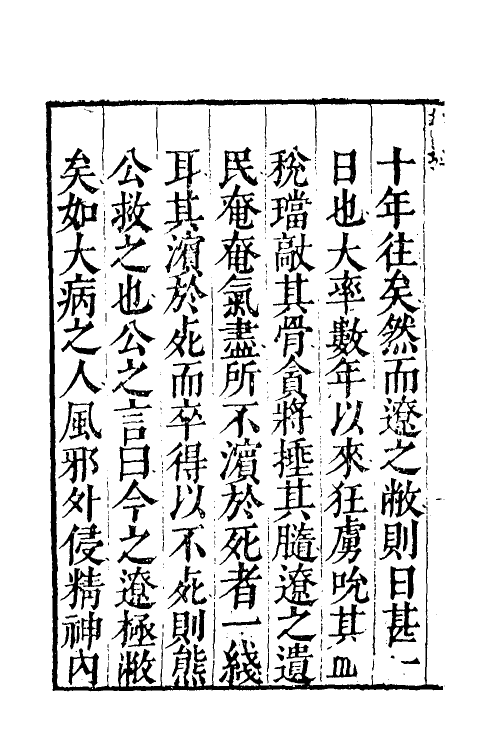 十年往矣然而遼之敝則日甚一
日也大率數年以來狂虜吮其血
稅璫敲其骨貪將捶其髓遼之遺
民奄奄氣盡所不濵於死者一綫
耳其濵於死而卒得以不死則熊
公救之也公之言曰今之遼極敝
矣如大病之人風邪外侵精神內